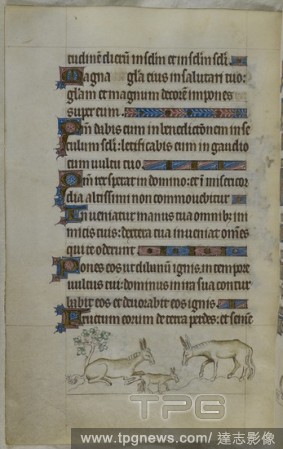 tudinem dierum in sclm et in sclm scli.
Magna gla eius in salutari tuo:
glam et magnum decorem impones
super eum.
Qm dabis eum in benedictōem in se
culum scli: letificabis eum in gaudio
cum vultu tuo.
Qm rex sperat in domino: et in misericor
dia altissimi non commouebitur
Inueniatur manus tua omnib; ini
micis tuis: dextera tua inueniat omēs
qui te oderunt.
Pones eos ut clibanū ignis in tempore
vultus tui: dominus in ira sua contur
babit eos et deuorabit eos ignis.
Fructum eorum de terra perdes: et semē
TPG
www.tpgnews.com / 達志影像